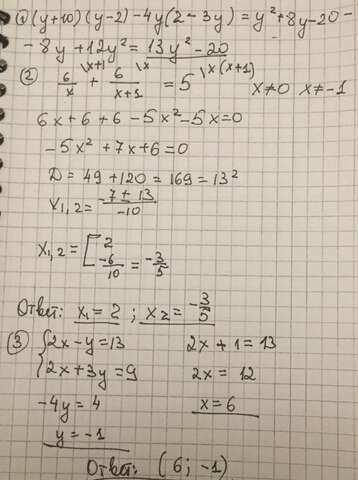 ① (y+10)(y-2)-4y(2-3y)=y²+8y-20-
-8y+12y²=13y²-20
② 6/x \x+1 + 6/(x+1) \x = 5 \x(x+1) x≠0 x≠-1
6x+6+6-5x²-5x=0
-5x²+7x+6=0
D=49+120=169=13²
x₁,₂=(-7±13)/-10
x₁,₂=[2
-6/10=-3/5
Ответ: x₁=2; x₂=-3/5
③ {2x-y=13 2x+1=13
{2x+3y=9 2x=12
-4y=4 x=6
y=-1
Ответ: (6;-1)